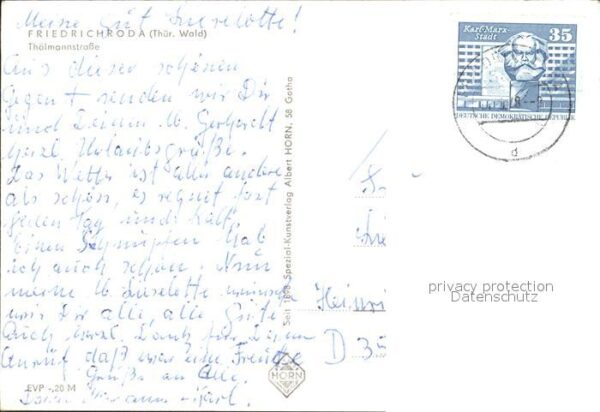 Meine gut Lieselotte!
FRIEDRICHRODA (Thür. Wald)
Thälmannstraße
Aus dieser schönen
Gegend senden wir Dir
und Deinen lb. Gerhardt
herzl. Urlaubsgrüße.
Das Wetter ist alles andere
als schön, es regnet fast
jeden Tag und kalt,
einen Schnupfen hab
ich auch schon. Nun
meine lb. Lieselotte wünschen
wir Dir alle, alle Gute
Auch herzl. Dank für Deinen
Anruf, daß war eine Freude
Grüße an Alle
Deine Karl.
EVP -,20 M
Seit 1898 Spezial-Kunstverlag Albert HORN, 58 Gotha
HORN
Karl-Marx-Stadt
35
DEUTSCHE DEMOKRATISCHE REPUBLIK
d
Heinri
D 35
privacy protection
Datenschutz